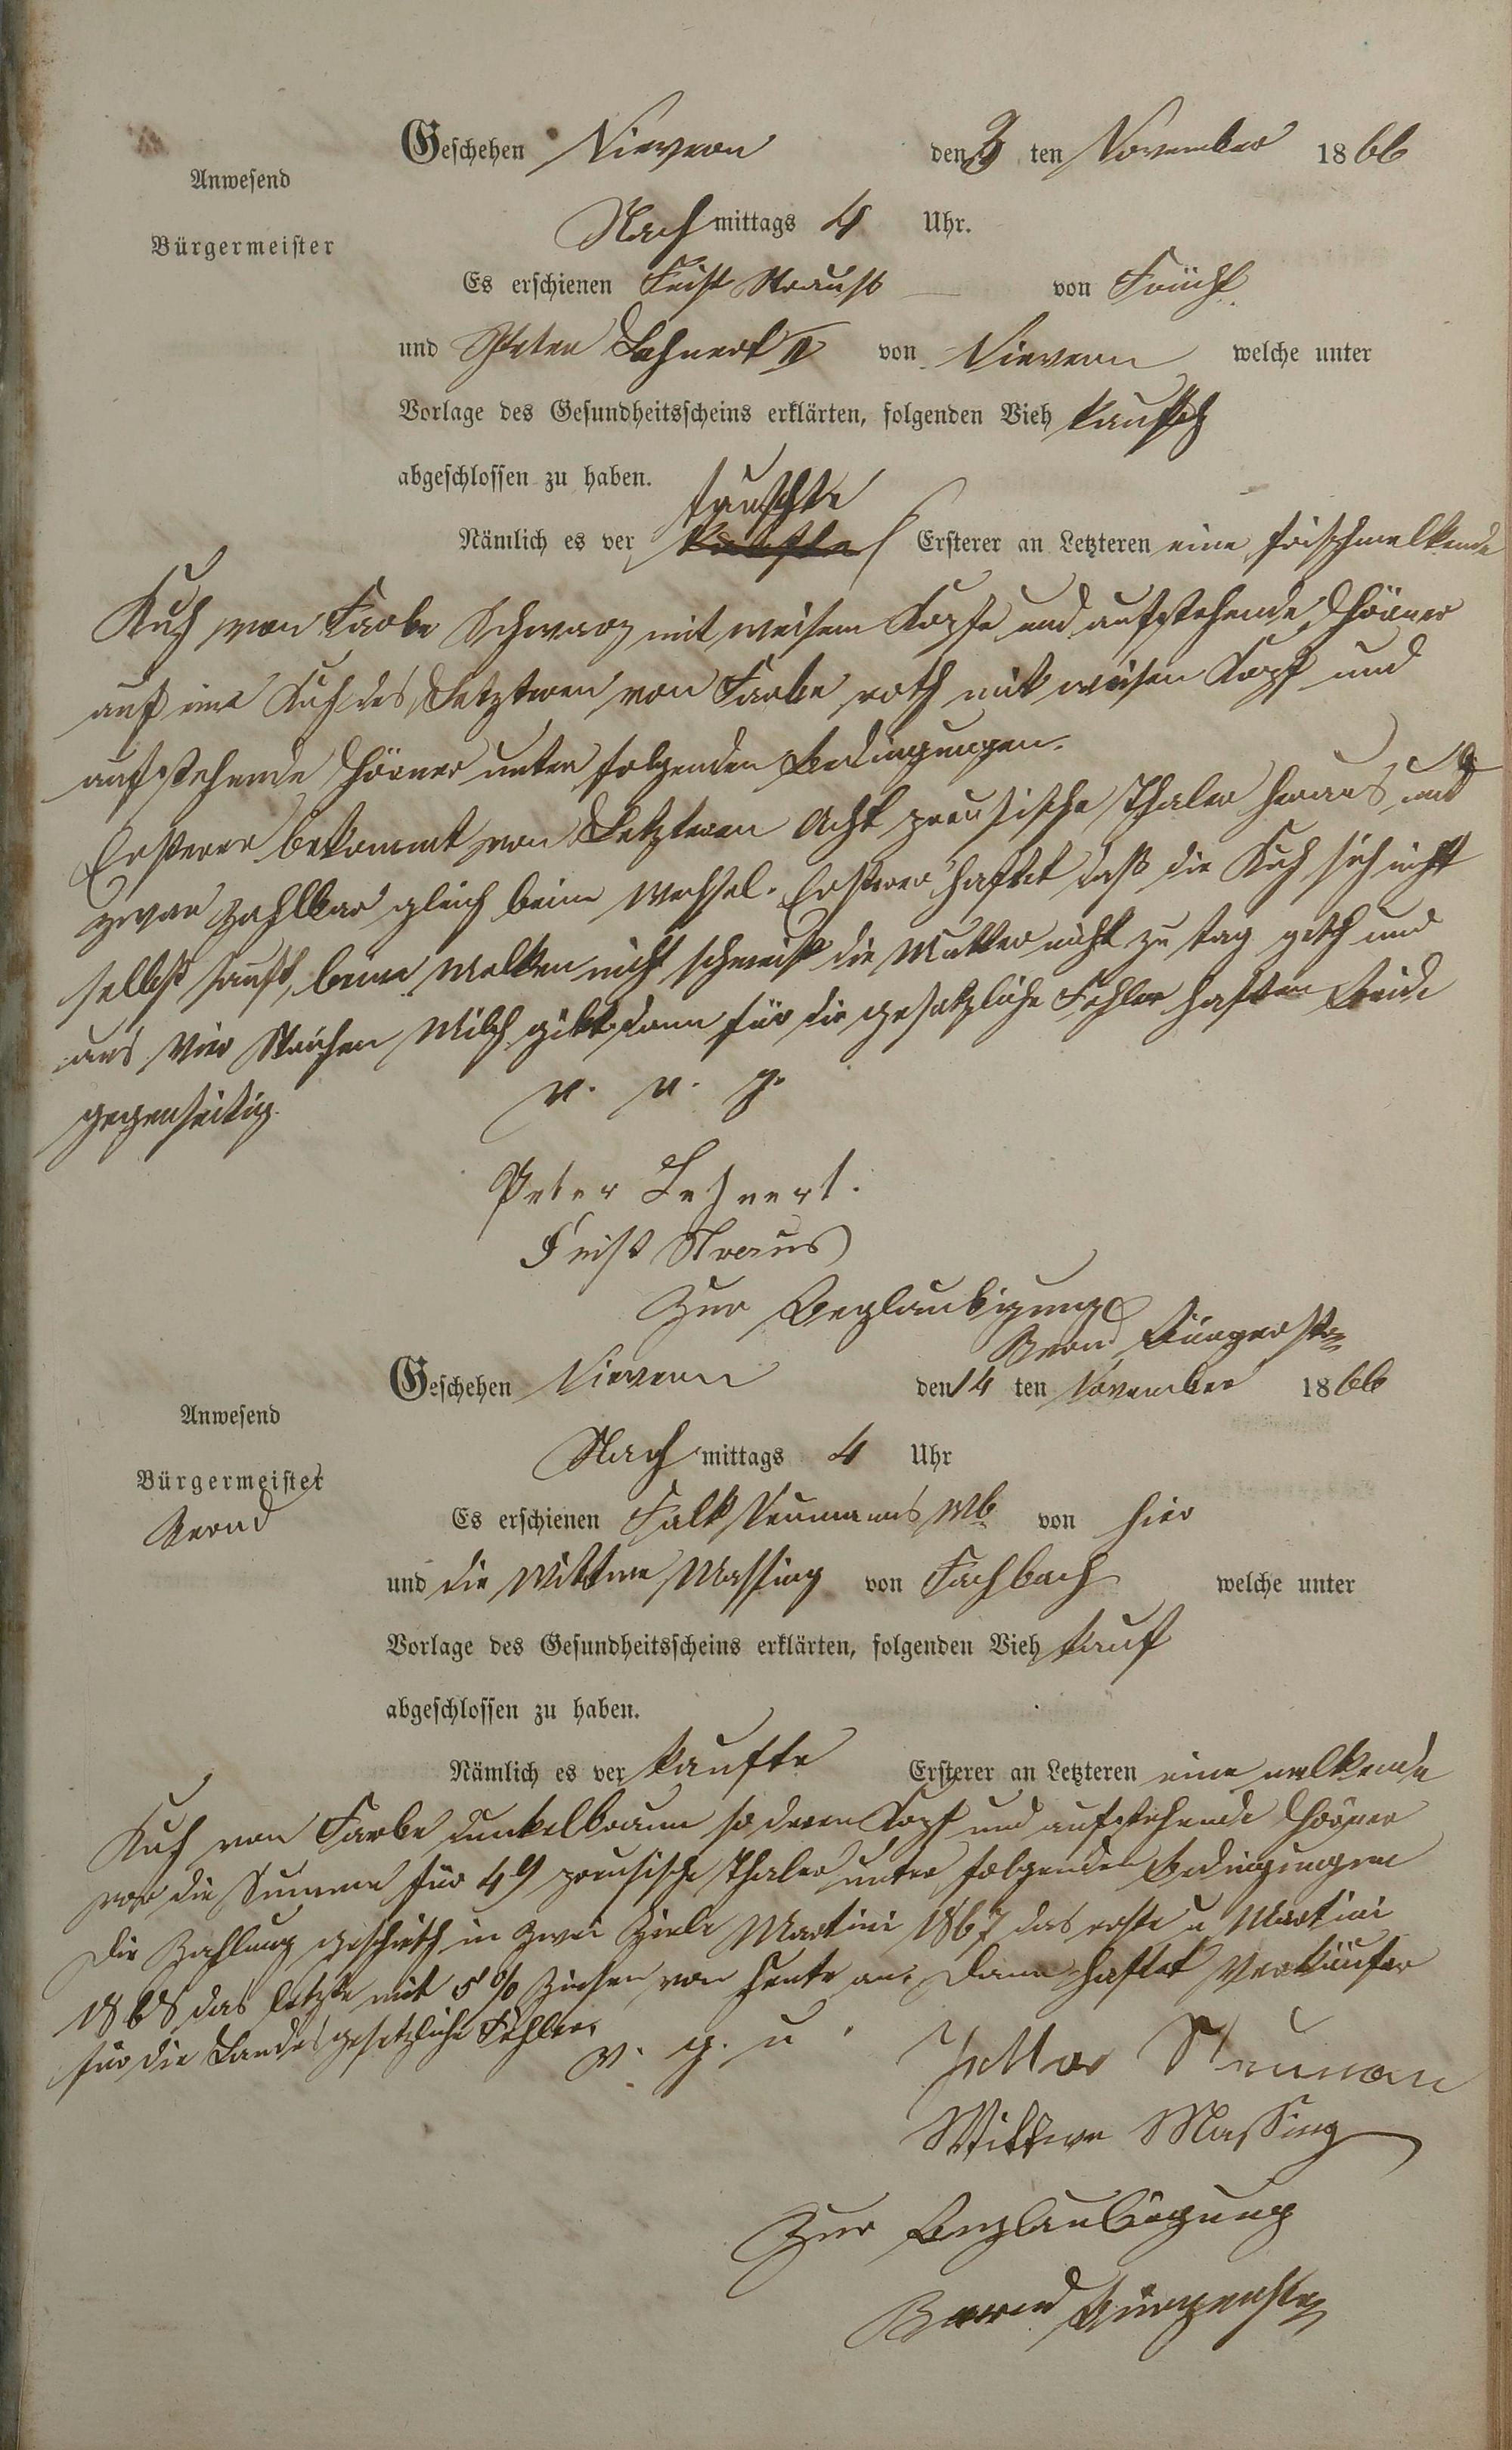 Geschehen Nievern den 3 ten November 1866
Anwesend
Nachmittags 4 Uhr.
Bürgermeister
Es erschienen Feist Strauss von Frücht
und Peter Lehnert II von Nievern welche unter
Vorlage des Gesundheitsscheins erklärten, folgenden Vieh tausch
abgeschlossen zu haben.
tauschte
Nämlich es ver kaufte Ersterer an Letzteren eine frischmelkende
Kuh von Farbe Schwarz mit weisem Kopfe und aufstehende Hörner
auf eine Kuh des Letzteren von Farbe roth mit weisen Kopf und
aufstehende Hörner unter folgenden Bedingungen.
Ersterer bekommt von Letzteren Acht preusische Thaler heraus und
zwar zahlbar gleich beim Wechsel. Ersterer haftet daß die Kuh sich nicht
selbst sauft, beim Melken nicht schmeist die Mutter nicht zu tag geth und
aus Vier Strichen Milch gibt dann für die gesetzliche Fehler haften Beide
gegenseitig.
v. u. g.
Peter Lehnert.
Feist Straus
Zur Beglaubigung
Bernd Bürgerstr
Geschehen Nievern den 14 ten November 1866
Anwesend
Nachmittags 4 Uhr
Bürgermeister
Bernd
Es erschienen Falk Neumanns Wb von hier
und die Wittwe Massing von Fachbach welche unter
Vorlage des Gesundheitsscheins erklärten, folgenden Vieh kauf
abgeschlossen zu haben.
Nämlich es ver kaufte Ersterer an Letzteren eine melkende
Kuh von Farbe dunkelbraun so deren Kopf und aufstehende Hörner
vor die Summe für 49 preusische Thaler unter folgenden Bedingungen
Die Zahlung geschieth in zwei Ziele Martini 1867 das erste u Martini
1868 das letzte mit 5 % Zinsen von heute an. Dann haftet Verkäufer
für die Landesgesetzliche Fehler.
v. g. u.
Neuman
Wittwe Massing
Zur Beglaubigung
Bernd Bürgerstr